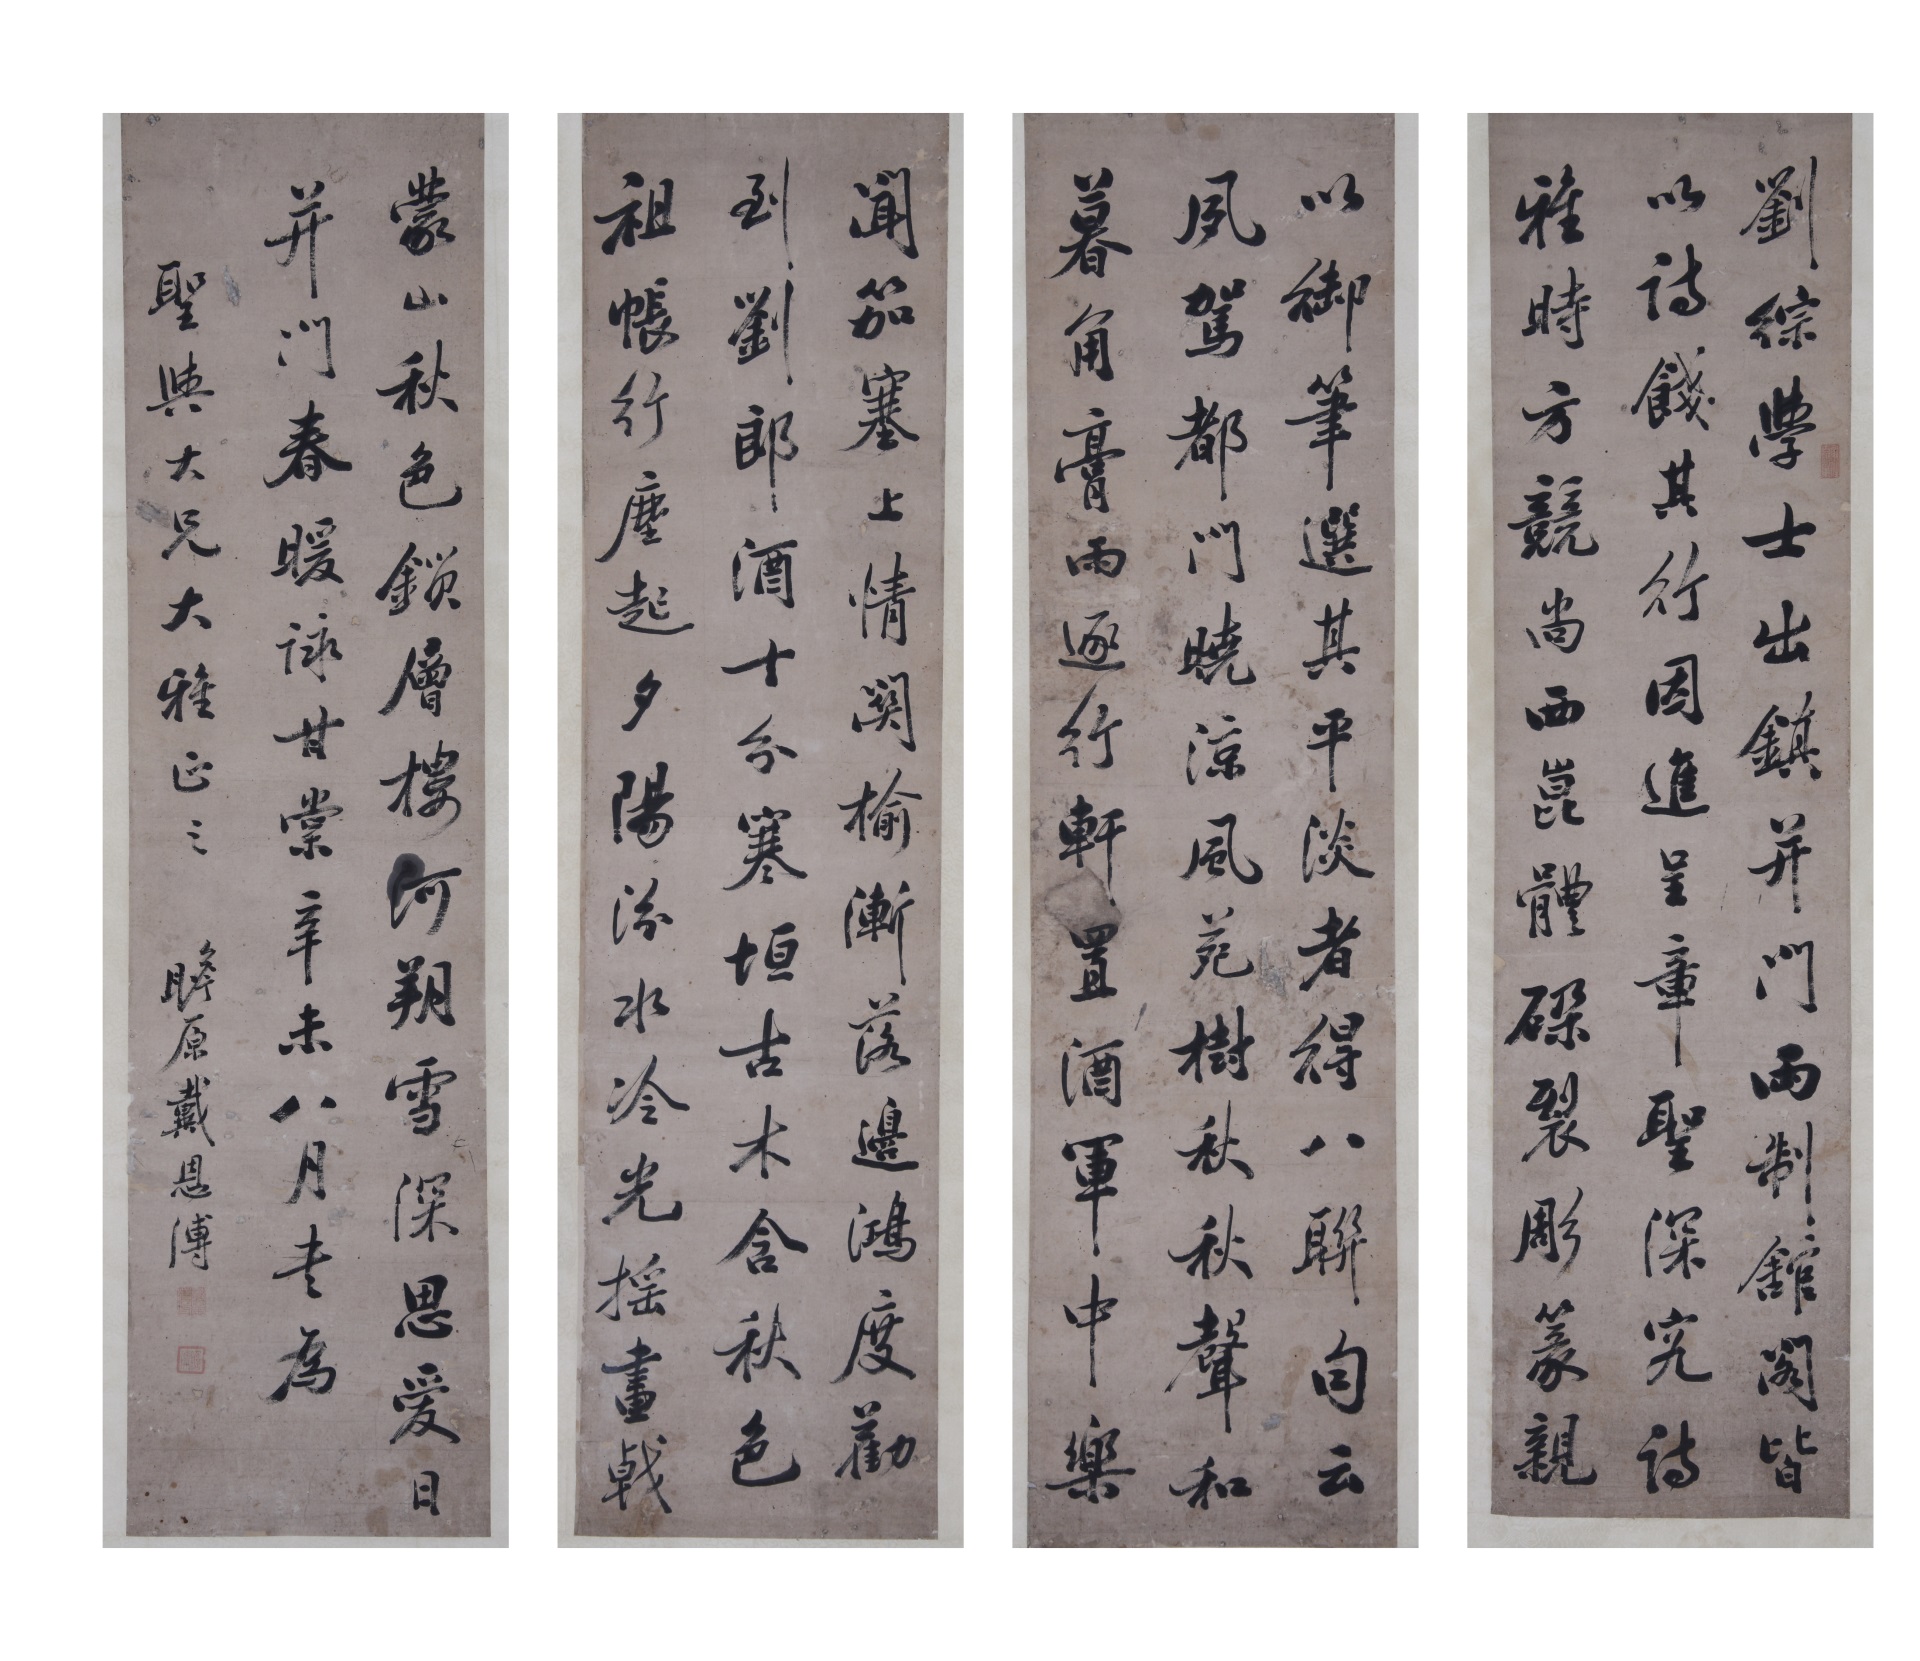 劉綜學士出鎮并門兩制館閣皆
以詩餞其行因進呈章聖深究詩
雅時方競尚西崑體磔裂彫篆親
以御筆選其平淡者得八聯句云
夙駕都門曉涼風苑樹秋秋聲和
暮角膏雨逐行軒置酒軍中樂
聞笳塞上情關榆漸落邊鴻度勸
到劉郎酒十分寒垣古木含秋色
祖帳行塵起夕陽汾水冷光搖畫戟
蒙山秋色鎖層樓河朔雪深思愛日
并門春暖詠甘棠辛未八月書為
聖典大兄大雅正之
原戴思溥